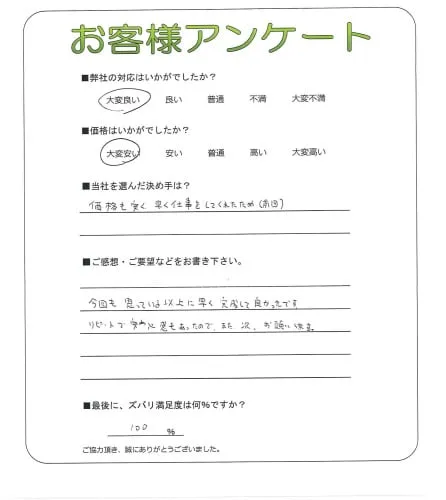 お客様アンケート
■弊社の対応はいかがでしたか？
大変良い 良い 普通 不満 大変不満
■価格はいかがでしたか？
大変安い 安い 普通 高い 大変高い
■当社を選んだ決め手は？
価格も安く 早く仕事をしてくれたため(前回)
■ご感想・ご要望などをお書き下さい。
今回も思っていた以上に早く完成して良かったです。
リピートで安心感もあったので、また次、お願い致します。
■最後に、ズバリ満足度は何％ですか？
100 %
ご協力頂き、誠にありがとうございました。